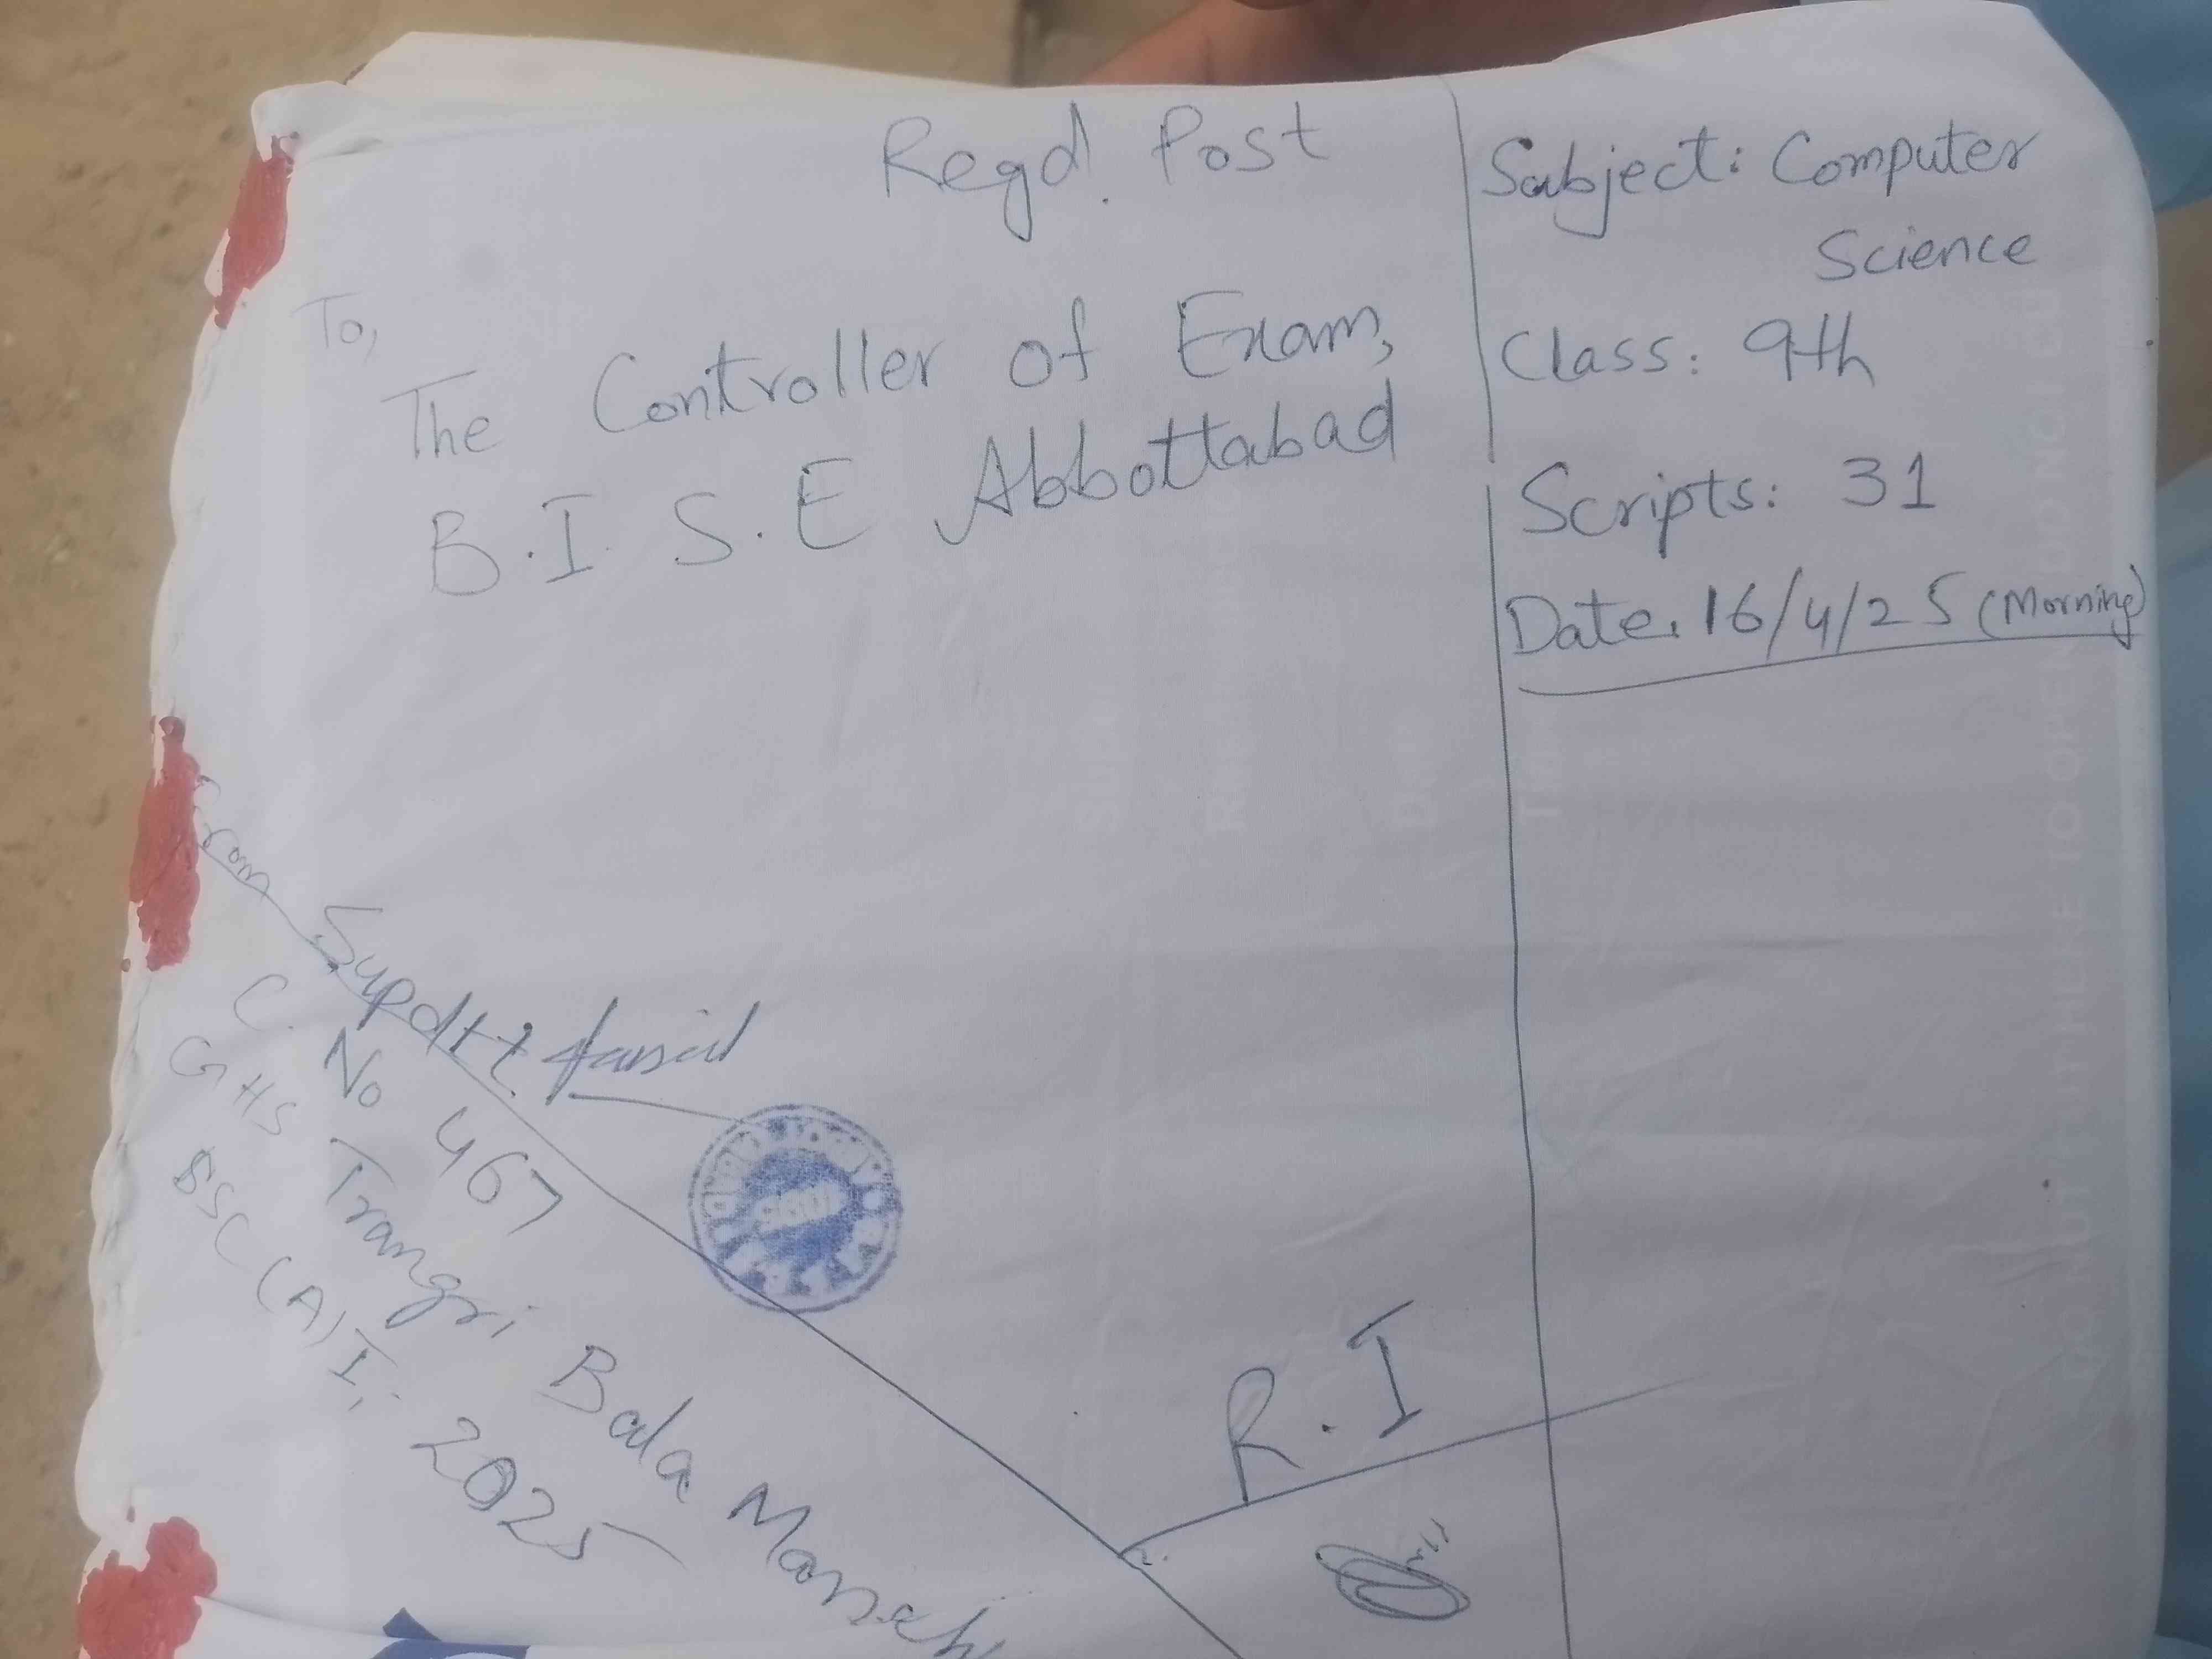 Regd. Post
To,
The Controller of Exam,
B.I.S.E Abbottabad
Subject: Computer
Science
Class: 9th
Scripts: 31
Date. 16/4/25 (Morning)
From
Supdtt
C. No 467
GHS Trangri Bala Manseh
SSC (A) I, 2025
R.I